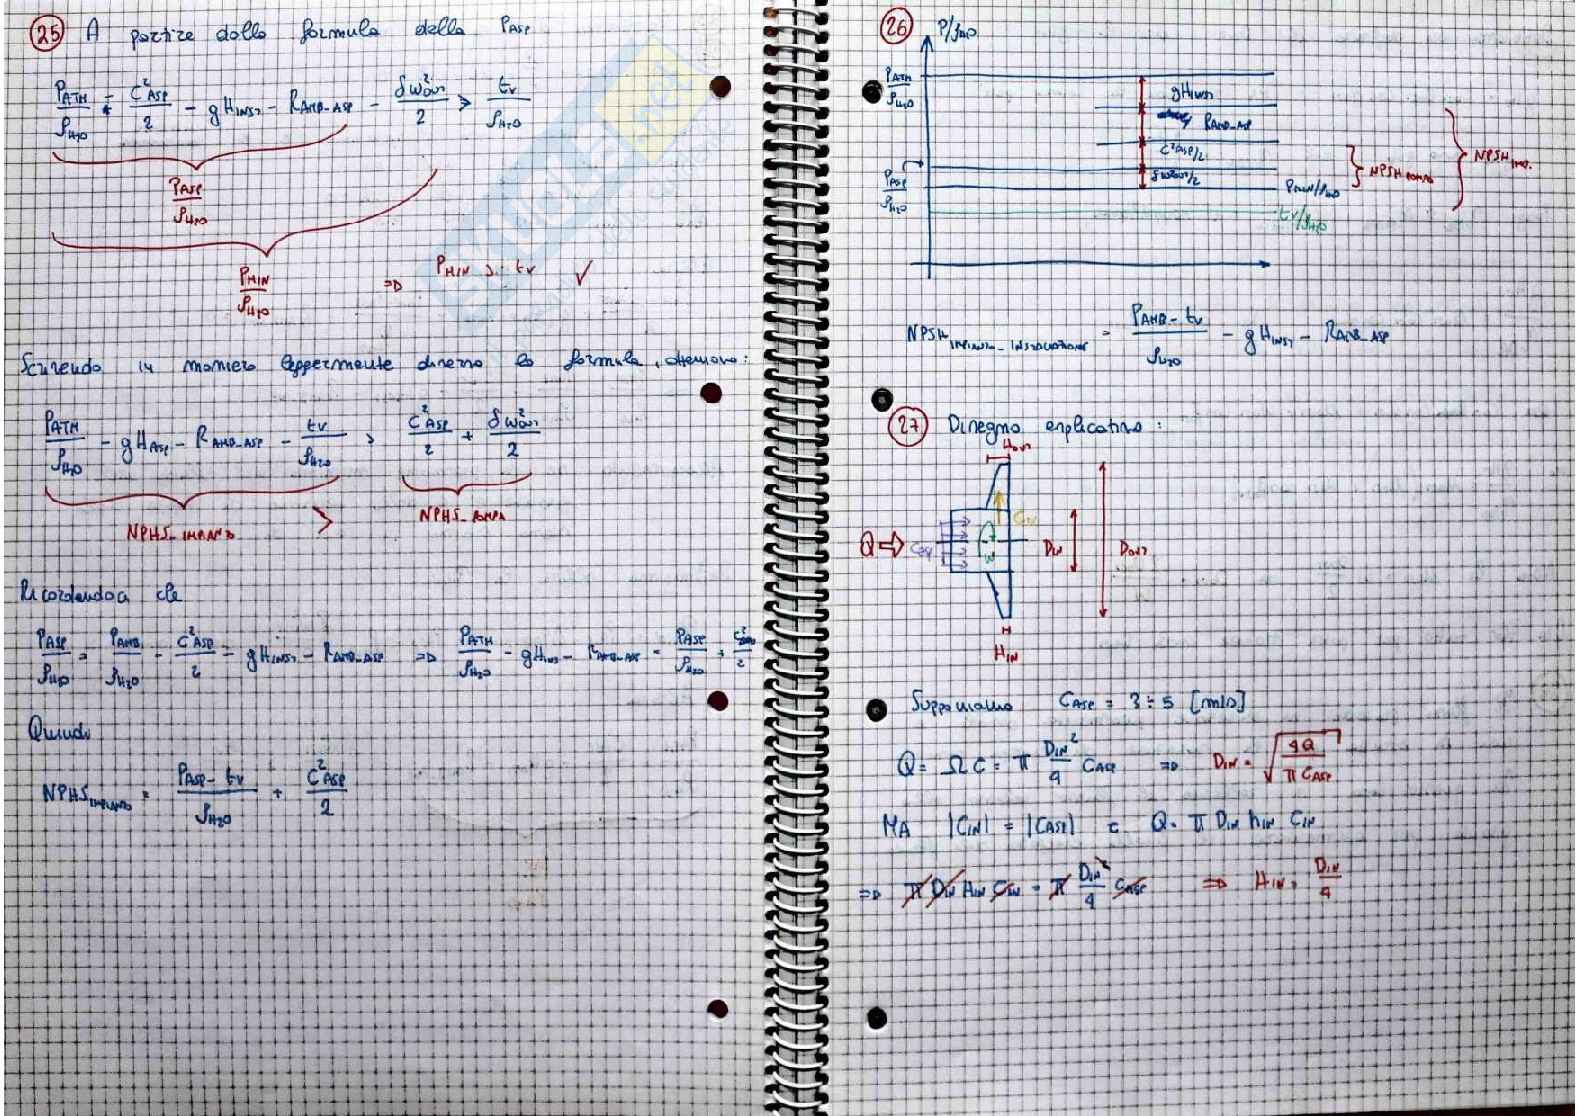 25 A partire dalla formula della PASP
PATM/ρH2O - C²ASP/2 - gHINST - RAMB-ASP - δw²OUT/2 > tv/ρH2O
PASP/ρH2O
PMIN/ρH2O ⇒ PMIN > tv ✓
Scrivendo in maniera leggermente diversa la formula, otteniamo:
PATM/ρH2O - gHASP - RAMB-ASP - tv/ρH2O > C²ASP/2 + δw²OUT/2
NPHS_IMPIANTO > NPHS_POMPA
Ricordando che
PASP/ρH2O = PAMB/ρH2O - C²ASP/2 - gHINST - RAMB-ASP ⇒ PATM/ρH2O - gHINS - RAMB-ASP = PASP/ρH2O + C²ASP/2
Quindi
NPHSIMPIANTO = PASP - tv/ρH2O + C²ASP/2
26 P/ρH2O
PATM/ρH2O
gHINST
RAMB-ASP
C²ASP/2
PASP/ρH2O
δw²OUT/2
PMIN/ρH2O
NPSHPOMPA
NPSHIMP.
tv/ρH2O
NPSHIMPIANTO-INSTALLAZIONE = PAMB - tv/ρH2O - gHINST - RAMB-ASP
27 Disegno esplicativo:
HOUT
CIN
Q ⇒ CASP
W
DIN
DOUT
HIN
Supponiamo CASP = 3÷5 [m/s]
Q = Ω C = π DIN²/4 CASP ⇒ DIN = √4Q/π CASP
MA |CIN| = |CASP| e Q = π DIN hIN CIN
⇒ π DIN HIN CIN = π DIN²/4 CASP ⇒ HIN = DIN/4